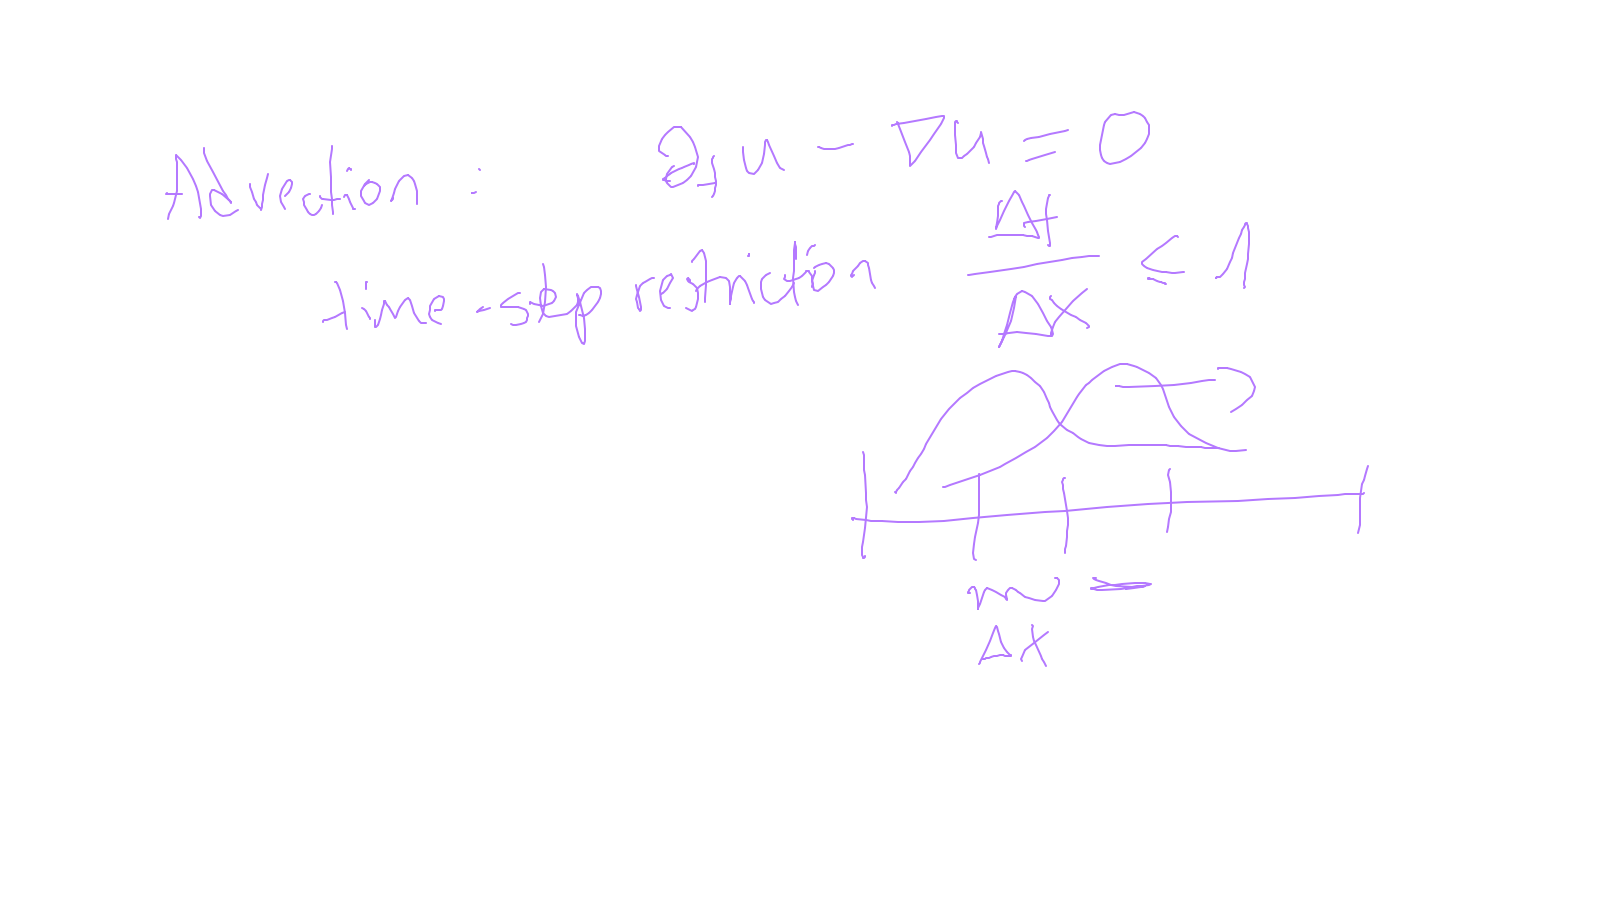 Advection : ∂_t u - ∇u = 0
time-step restriction Δt/Δx ≤ 1
Δx